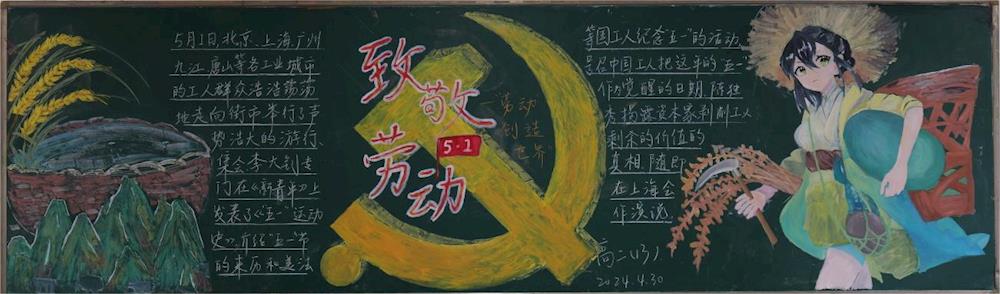 5月1日,北京、上海、广州
九江、唐山等各工业城市
的工人群众浩浩荡荡
地走向街市举行了声
势浩大的游行、
集会李大钊专
门在《新青年》上
发表了《"五一"运动
史》,介绍"五一"节
的来历和美法
致敬
劳动
5·1
"劳动
创造
世界"
等国工人纪念"五一"的活动,
号召中国工人把这年的"五一"
作为觉醒的日期,陈独
秀揭露资本家剥削工人
剩余的价值的
真相,随即
在上海会
作演说
高二(13)
2024.4.30